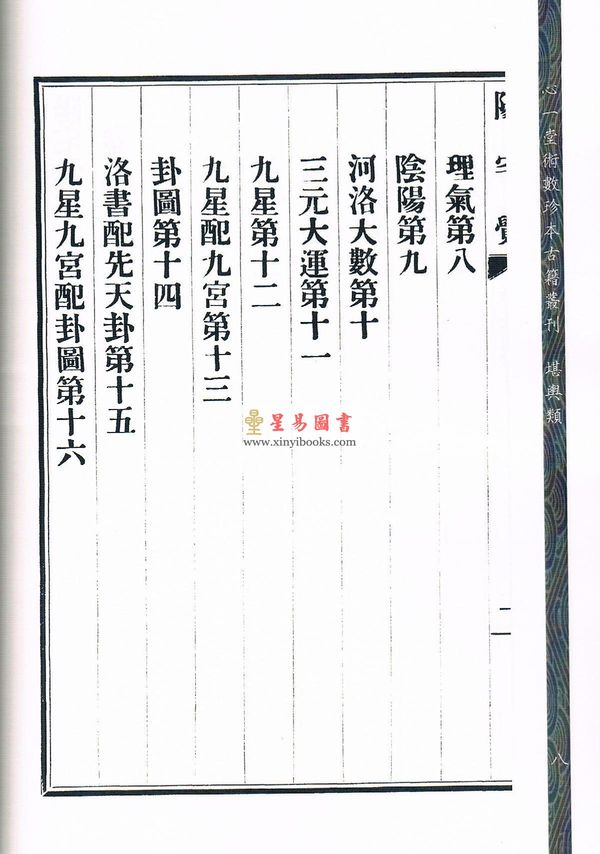 心一堂術數珍本古籍叢刊 堪輿類
八
二
理氣第八
陰陽第九
河洛大數第十
三元大運第十一
九星第十二
九星配九宮第十三
卦圖第十四
洛書配先天卦第十五
九星九宮配卦圖第十六
星易圖書
www.xinyibooks.com